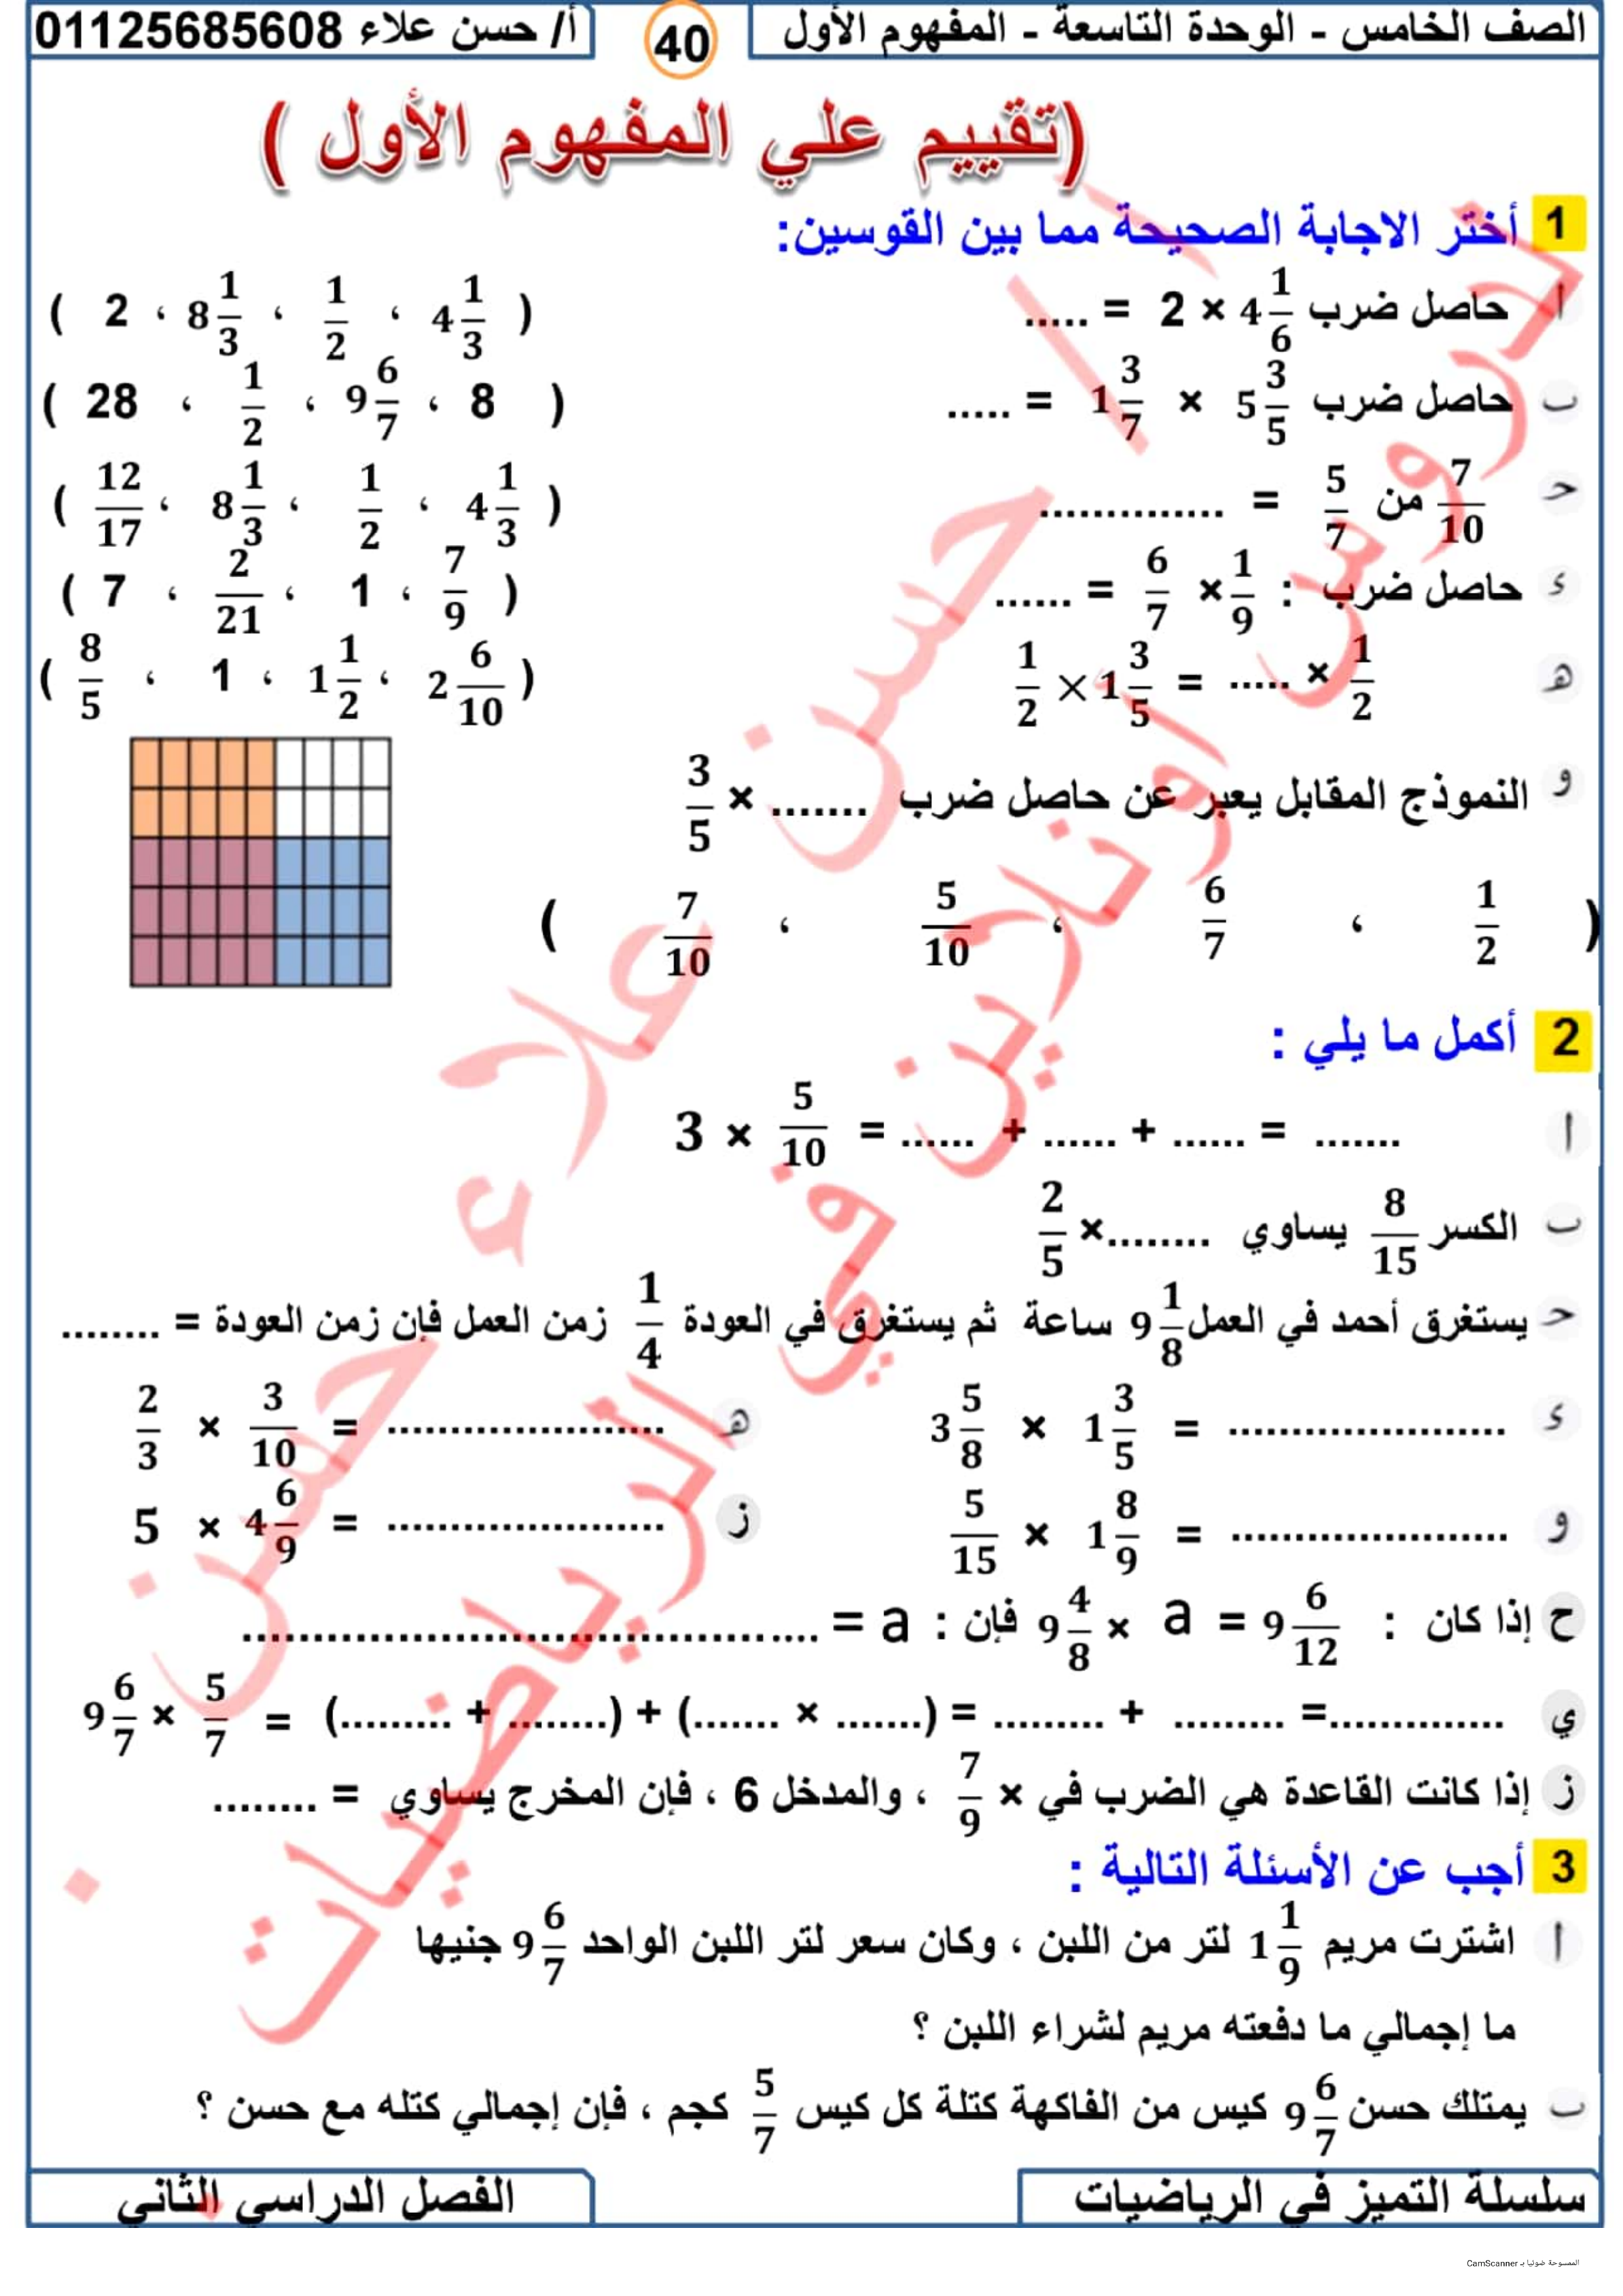 الصف الخامس - الوحدة التاسعة - المفهوم الأول 40 أ/ حسن علاء 01125685608
(تقييم علي المفهوم الأول )
1 أختر الاجابة الصحيحة مما بين القوسين:
أ حاصل ضرب 4 1/6 × 2 = ..... ( 4 1/3 ، 1/2 ، 8 1/3 ، 2 )
ب حاصل ضرب 5 3/5 × 1 3/7 = ..... ( 8 ، 9 6/7 ، 1/2 ، 28 )
حـ 7/10 من 5/7 = .............. ( 4 1/3 ، 1/2 ، 8 1/3 ، 12/17 )
ء حاصل ضرب : 1/9 × 6/7 = ...... ( 7/9 ، 1 ، 2/21 ، 7 )
هـ 1/2 × 1 3/5 = ..... × 1/2 ( 2 6/10 ، 1 1/2 ، 1 ، 8/5 )
و النموذج المقابل يعبر عن حاصل ضرب ....... × 3/5
( 1/2 ، 6/7 ، 5/10 ، 7/10 )
2 أكمل ما يلي :
أ 3 × 5/10 = ...... + ...... + ...... = .......
ب الكسر 8/15 يساوي ........× 2/5
حـ يستغرق أحمد في العمل 9 1/8 ساعة ثم يستغرق في العودة 1/4 زمن العمل فإن زمن العودة = ........
ء 3 5/8 × 1 3/5 = ...................... هـ 2/3 × 3/10 = ......................
و 5/15 × 1 8/9 = ...................... ز 5 × 4 6/9 = ......................
ح إذا كان : 9 4/8 × a = 9 6/12 فإن : a = .........................................
ي 9 6/7 × 5/7 = (......... + ........) + (....... × .......) = ......... + ......... =..............
ز إذا كانت القاعدة هي الضرب في × 7/9 ، والمدخل 6 ، فإن المخرج يساوي = ........
3 أجب عن الأسئلة التالية :
أ اشترت مريم 1 1/9 لتر من اللبن ، وكان سعر لتر اللبن الواحد 9 6/7 جنيها
ما إجمالي ما دفعته مريم لشراء اللبن ؟
ب يمتلك حسن 9 6/7 كيس من الفاكهة كتلة كل كيس 5/7 كجم ، فإن إجمالي كتله مع حسن ؟
سلسلة التميز في الرياضيات الفصل الدراسي الثاني
أ / حسن علاء حسن
دروس أونلاين في الرياضيات
الممسوحة ضوئيا بـ CamScanner